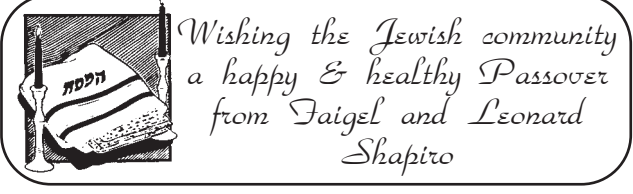 הפסח
Wishing the Jewish community
a happy & healthy Passover
from Faigel and Leonard
Shapiro